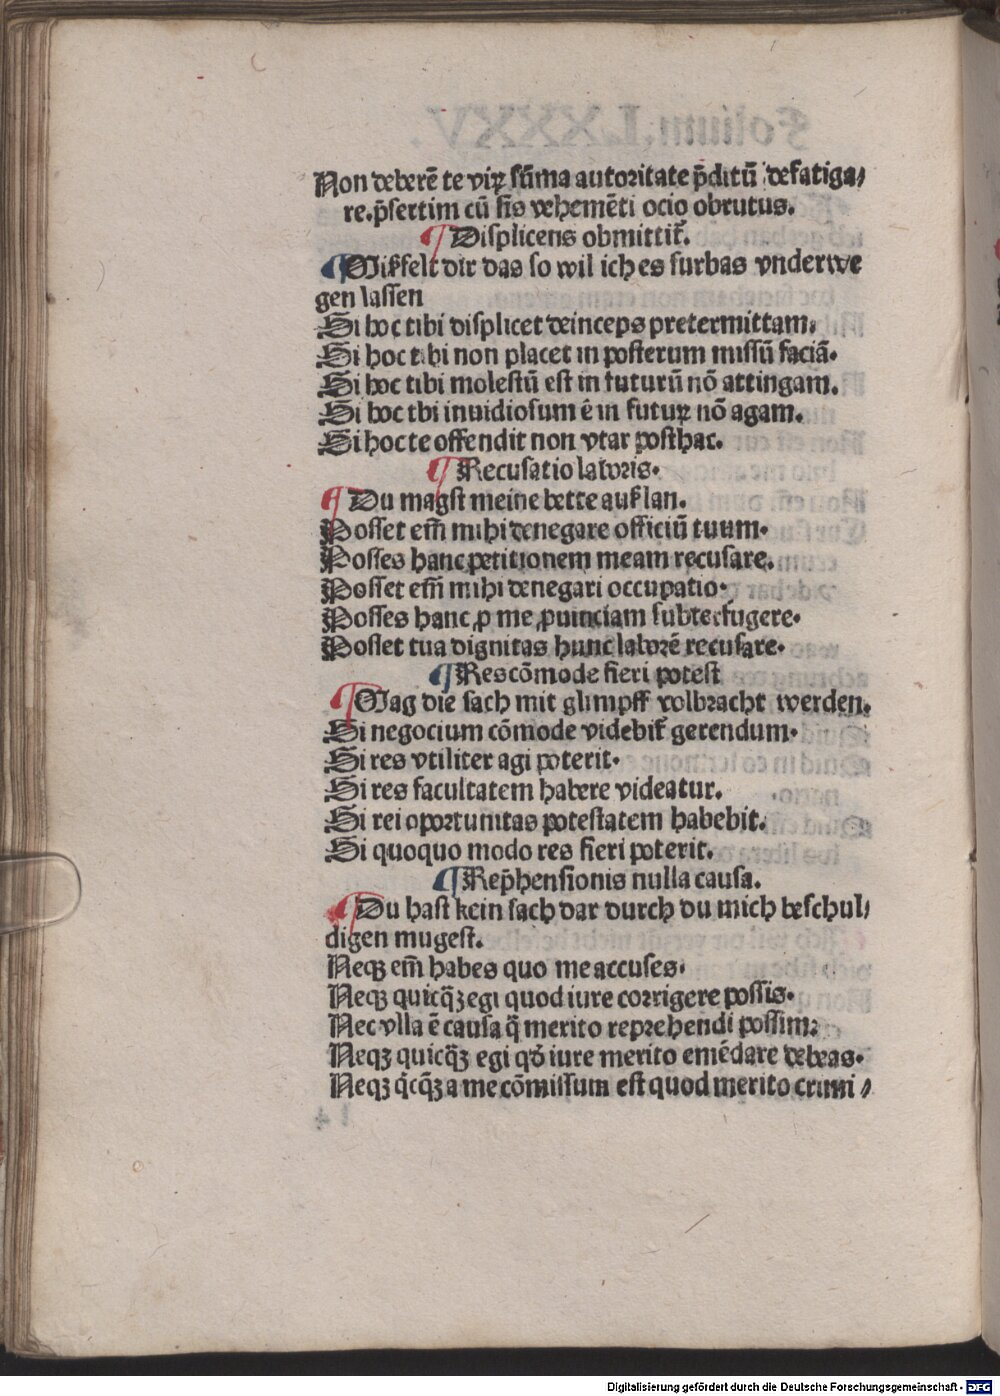 Non deberē te viꝝ sūma autoritate p̄ditū defatiga⸗
re.p̄sertim cū sīs vehemēti ocio obrutus.
¶ Displicens obmittit᷑.
¶ Misfelt dir das so wil ich es furbas vnderwe
gen lassen
Si hoc tibi displicet deinceps pretermittam.
Si hoc tibi non placet in posterum missū faciā.
Si hoc tibi molestū est in futurū nō attingam.
Si hoc tbi inuidiosum ē in futuꝝ nō agam.
Si hoc te offendit non vtar posthac.
¶ Recusatio laboris.
¶ Du magst meine bette auſslan.
Posset em̄ mihi denegare officiū tuum.
Posses hanc petitionem meam recusare.
Posset em̄ mihi denegari occupatio.
Posses hanc ꝓ me ꝓuinciam subterfugere.
Posset tua dignitas hunc laborē recusare.
¶ Res cōmode fieri potest
¶ Mag die sach mit glimpff volbracht werden.
Si negocium cōmode videbit᷑ gerendum.
Si res vtiliter agi poterit.
Si res facultatem habere videatur.
Si rei oportunitas potestatem habebit.
Si quoquo modo res fieri poterit.
¶ Rep̄hensionis nulla causa.
¶ Du hast kein sach dar durch du mich beschul⸗
digen mugest.
Neqꝫ em̄ habes quo me accuses.
Neqꝫ quicq̄ꝫ egi quod iure corrigere possis.
Nec vlla ē causa q̄ merito reprehendi possim.
Neqꝫ quicq̄ꝫ egi qd̄ iure merito emēdare debeas.
Neqꝫ q̇cq̄ꝫ a me cōmissum est quod merito crimi⸗
Digitalisierung gefördert durch die Deutsche Forschungsgemeinschaft - DFG